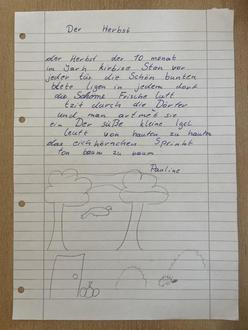 Der Herbst
der Herbst der 10 monat
im Jarh kirbise Stan vor
jeder tür die Schön bunten
blete ligen in jedem dorf
die Schöne Frische luft
tzit durch die Dörfer
und man artmet sie
ein Der süße kleine Igel
leuft von hauten zu hauten
das eichhörnchen Sprinkt
fon baum zu baum
Pauline